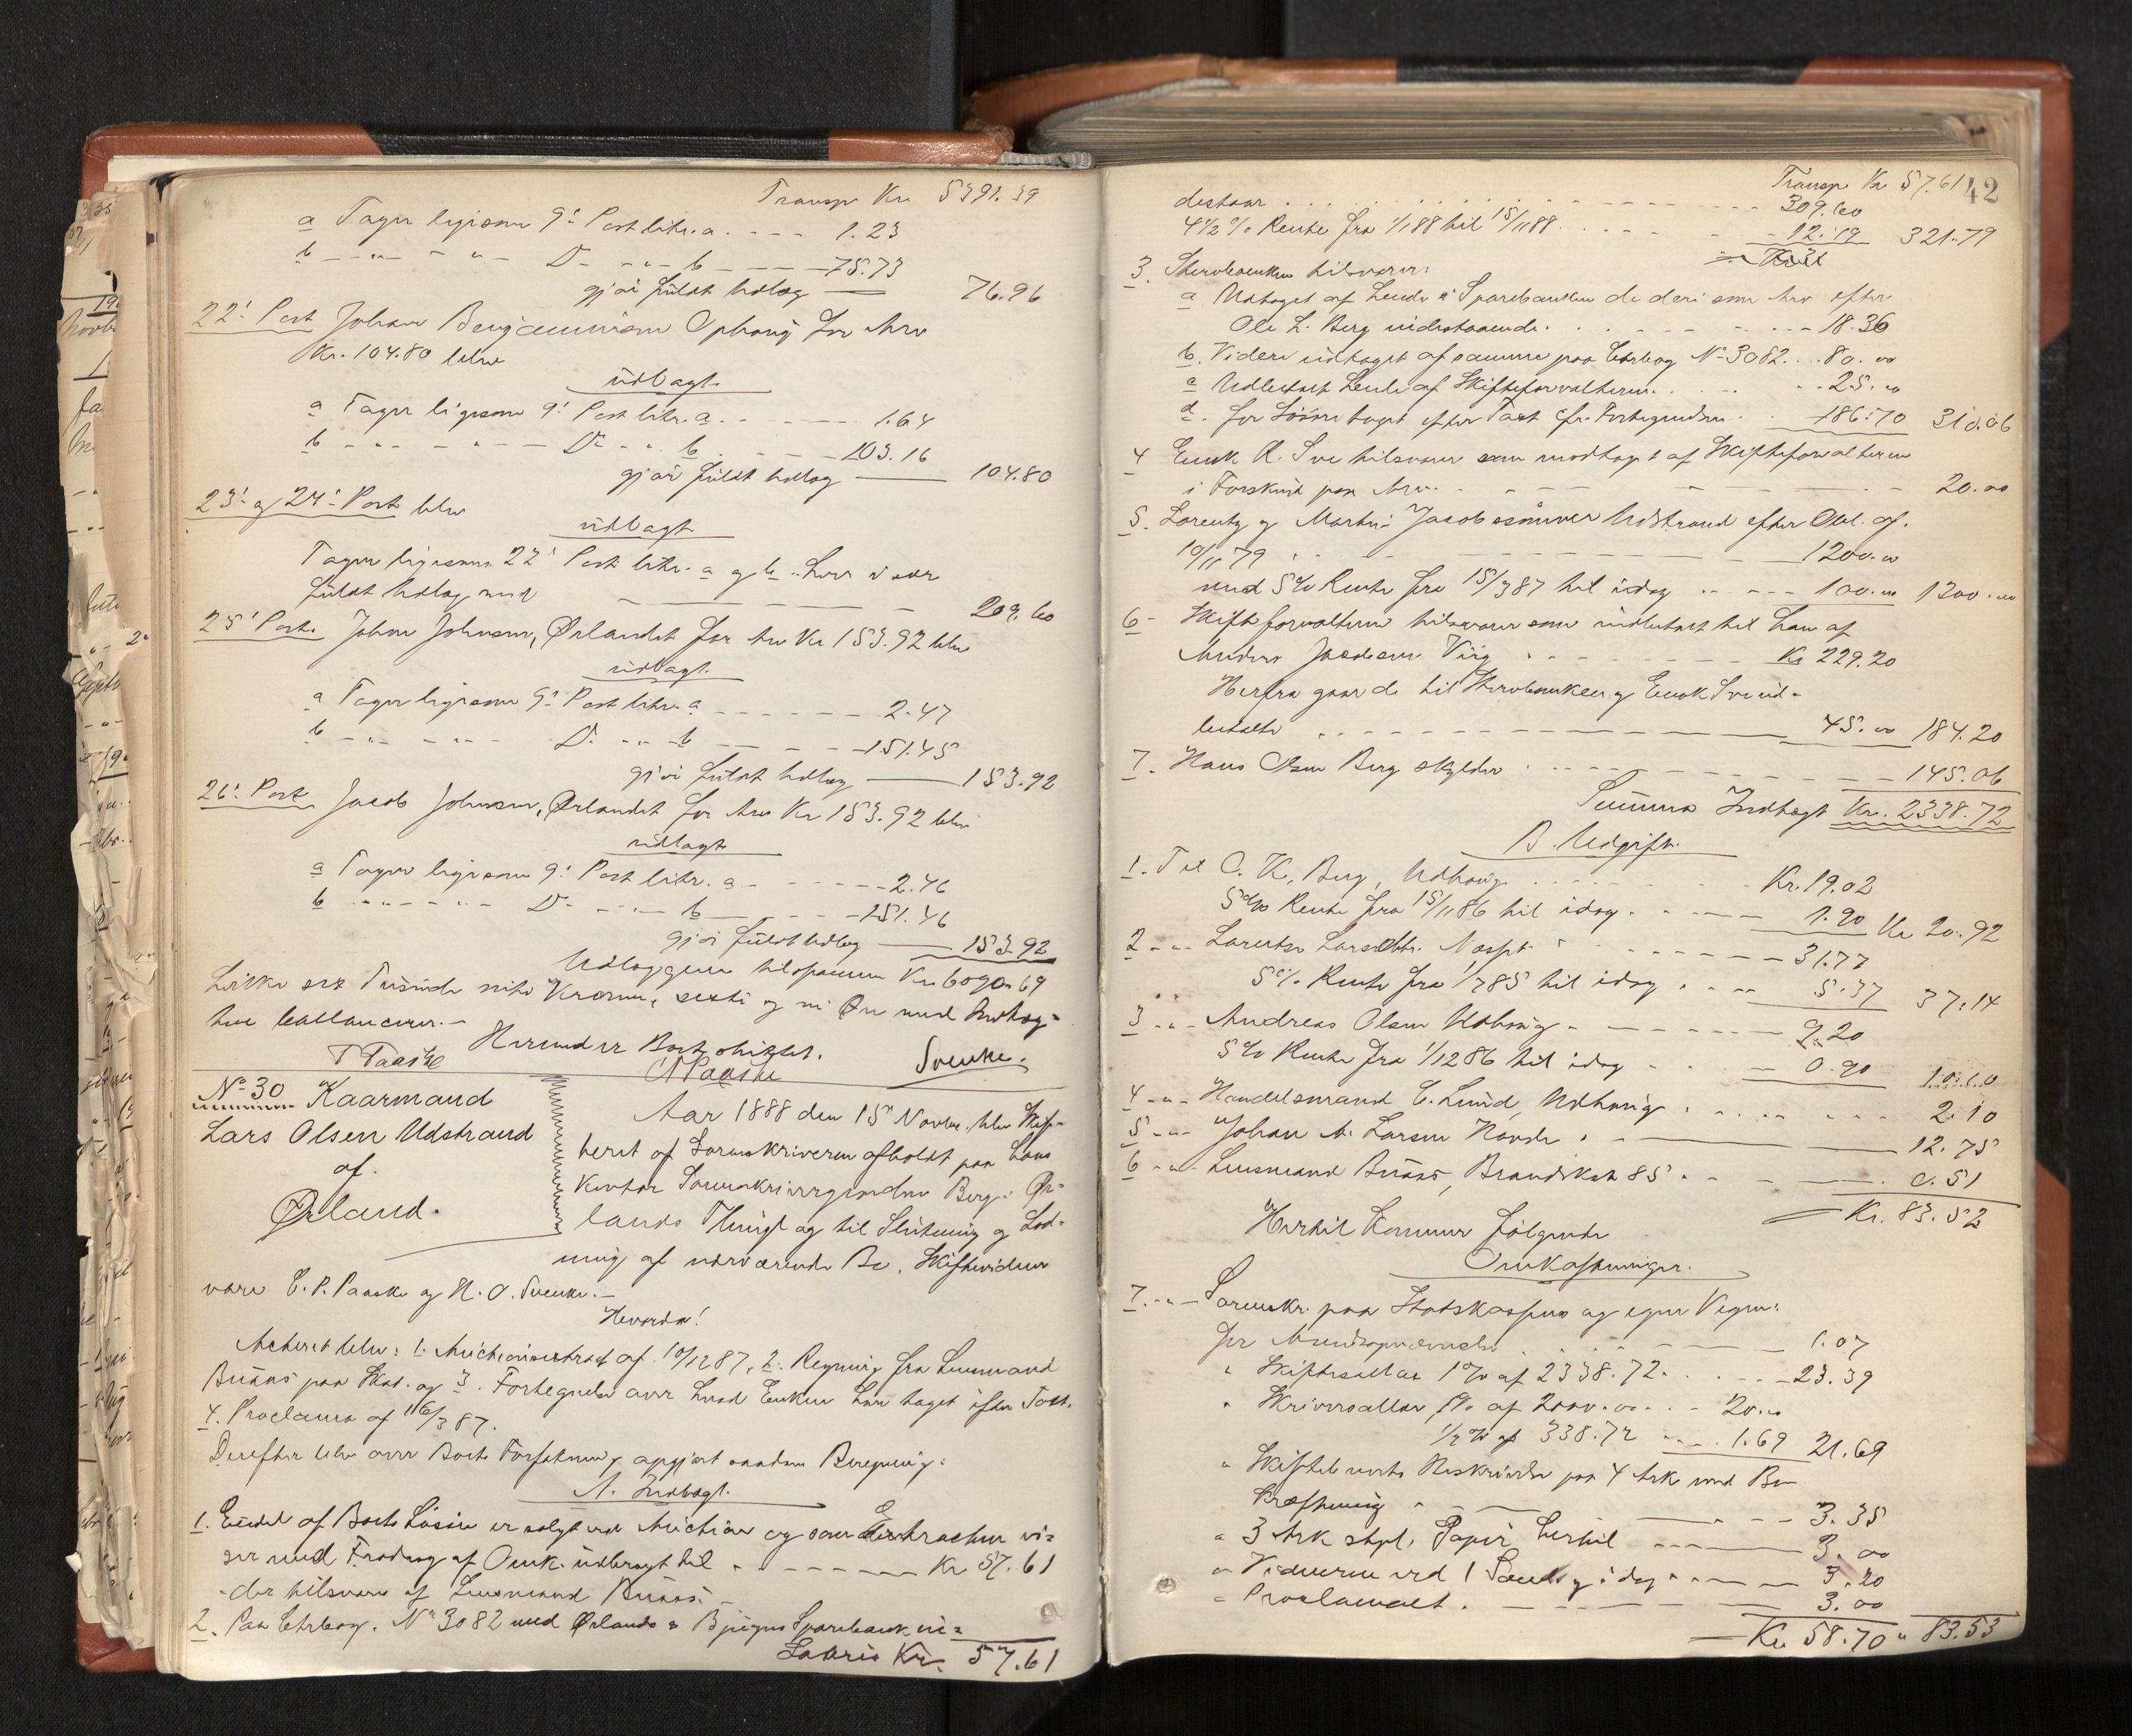 Transp Kr. 5391.39
a Tager ligesom 9' Post litr. a. - - - 1.23
b - " - - " - Do - " - b - - - 75.73
gjør fuldt Udlæg — 76.96
22' Post Johan Benjaminsen Ophaug for Arv
Kr. 104.80 blev
udlagt
a Tager ligesom 9' Post litr. a. - - - 1.64
b - " - - " - Do - " - b - - - 103.16
gjør fuldt Udlæg — 104.80
23' og 24' Post blev
udlagt
Tager ligesom 22' Post litr. a og b. hver
fuldt Udlæg med - - - - 209.60
25' Post. Johan Johnsen, Ørlandet for Arv Kr 153.92 blev
udlagt.
a Tager ligesom 9' Post litr. a - - - - 2.47
b - " - - " - Do - " - b - - - 151.45
gjør fuldt Udlæg — 153.92
26' Post Jacob Johnsen, Ørlandet for Arv Kr 153.92 blev
udlagt
a Tager ligesom 9' Post litr. a - - - - 2.46
b - " - - " - Do - " - b - - - 151.46
gjør fuldt Udlæg — 153.92
Udlæggene tilsammen Kr. 6090.69
hvilke sex Tusinde niti Kroner, sexti og ni Øre med Indtæg-
terne ballancerer.-
Hermed er Boet sluttet.
T Paaske CPPaaske Svenke.
No 30 Kaarmand
Lars Olsen Udstrand
af
Ørland.
Aar 1888 den 15' Novbr. blev Skif-
teret af Sorenskriveren afholdt paa hans
Kontor Sorenskrivergaarden Berg i Ør-
lands Thingl. og til Slutning og Lod-
ning af nærværende Bo. Skiftevidner
vare C. P. Paaske og H. O. Svenke.-
Hvorda!
Acteret blev: 1. Auctionsextract af 10/12 87, 2. Regning fra Lensmand
Buaas paa Skat. og 3. Fortegnelse over hvad Enken har taget efter Taxt.
4. Proclama af 16/3 87.
Derefter blev over Boets Forfatning opgjort saadan Beregning:
A. Indtægt.
1. Endel af Boets Løsøre er solgt ved Auction og som Extracten vi-
ser med Fradrag af Omk. udbragt til - - - - Kr 57.61
- der tilsvares af Lensmand Buaas. -
2. Paa Ctrbog. No 3082 med Ørlands & Bjugns Sparebank in=
Lateris Kr. 57.61
Transp Kr 57.61 42
destaar . . . . . . 309.60
4 1/2 % Rente fra 1/1 88 til 15/11 88. . . . 12.19 321.79
3. Stervboenken tilsvarer:
a Udtaget af hende i Sparebanken de deri som Arv efter
Ole L. Berg indestaaende. . . . . 18.36
b. Videre udtaget af samme paa Ctrbog No 3082. . . 80.00
c Udbetalt hende af Skifteforvalteren. . . . 25.00
d. for Løsøre taget efter Taxt cfr. Fortegnelsen . . 186.70 310.06
4 Enok A. Sve tilsvarer som modtaget af Skifteforvalteren
i Forskud paa Arv. - - - - - 20.00
5. Lorentz og Martin Jacobsønner Udstrand efter Obl. af
10/11 79 . . - - - - 1200.00
med 5 % Rente fra 15/3 87 til idag . . - - 100.00 1300.00
6 - Skifteforvalteren tilsvarer som indbetalt til ham af
Anders Jacobsen Viig . - - - - Kr 229.20
Herfra gaar de til Stervboenken og Enok Sve ud-
betalte . - - - - - 45.00 184.20
7. Hans Olsen Berg skylder . . - - - 145.06
Summa Indtægt Kr. 2338.72
B. Udgift.
1. Til O. K. Berg, Udhaug . . . . . . Kr. 19.02
5 % Rente fra 15/11 86 til idag . . - - 1.90 Kr 20.92
2 - " - Larsdttr. - - - - 31.77
5 % Rente fra 1/7 85 til idag . . . . 5.37 37.14
3 - " - Andreas Olsen Udhaug - - - - - 9.20
5 % Rente fra 1/12 86 til idag - - - 0.90 10.10
4 - " - Handelsmand C. Lund, Udhaug . . . . . . 2.10
5 - " - Johan A. Larsen . - — 12.75
6 - " - Lensmand Buaas, Brandskat 85 . - - — 0.51
Kr. 83.52
Hertil kommer følgende
Omkostninger.
7. - " - Sorenskr. paa Statskassens og egne Vegne:
for . . . . . — 1.07
" Skiftesallær 1 % af 2338.72. . . . . - 23.39
" Skriversallær 1% af 2000.00. . . - 20.00
1/2 % af 338.72 . . . . 1.69 21.69
" Skiftebrevets Beskrivelse paa 4 Ark med Be-
kræftning . - - — - - 3.35
" 3 Ark stpl. Papir hertil - - - — 3.00
" Vidnerne ved 1 Samling i dag . - — 3.20
" Proclamaet. - - - - - 3.00
Kr. 58.70 " 83.53